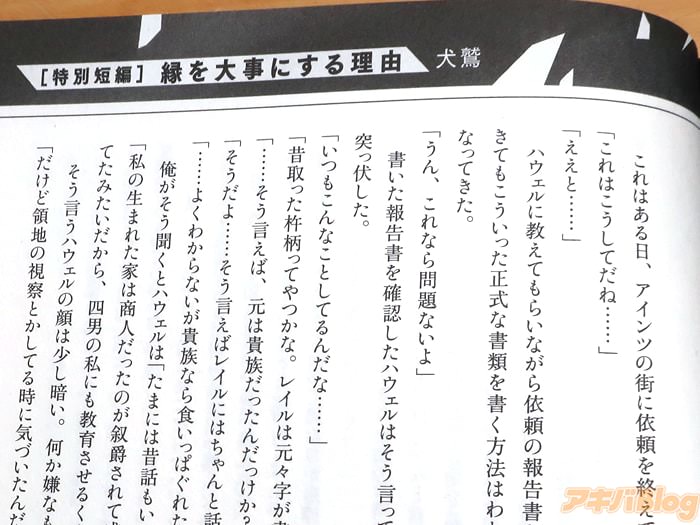 [特別短編] 縁を大事にする理由 犬鷲
これはある日、アインツの街に依頼を終えて
「これはこうしてだね……」
「ええと……」
ハウェルに教えてもらいながら依頼の報告書
きてもこういった正式な書類を書く方法はわ
なってきた。
「うん、これなら問題ないよ」
書いた報告書を確認したハウェルはそう言って
突っ伏した。
「いつもこんなことしてるんだな……」
「昔取った杵柄ってやつかな。レイルは元々字が
「……そう言えば、元は貴族だったんだっけか?
「そうだよ……そう言えばレイルにはちゃんと話
「……よくわからないが貴族なら食いっぱぐれた
俺がそう聞くとハウェルは「たまには昔話もい
「私の生まれた家は商人だったのが叙爵されて
てたみたいだから、四男の私にも教育させるく
そう言うハウェルの顔は少し暗い。何か嫌なも
「だけど領地の視察とかしてる時に気づいたんだ
アキバBlog